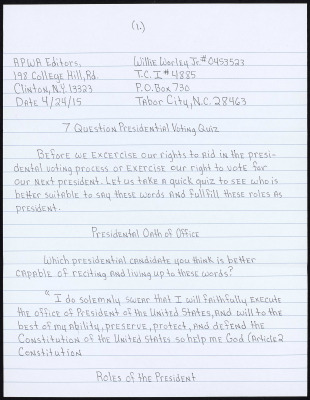 (1.)
APWA Editors,
Willie Worley Jr.# 0453523
198 College Hill, Rd.
T.C.I # 4885
Clinton, N.Y. 13323
P.O. Box 730
Date 4/24/15
Tabor City, N.C. 28463
7 Question Presidential Voting Quiz
Before we excercise our rights to aid in the presi-
dental voting process or exercise our right to vote for
our next president. Let us take a quick quiz to see who is
better suitable to say these words and fullfill these roles as
president.
Presidental Oath of Office
Which presidential candidate you think is better
capable of reciting and living up to these words?
" I do solemnly swear that I will faithfully execute
the office of President of the United States, and will to the
best of my ability, preserve, protect, and defend the
Constitution of the United States so help me God (Article 2
Constitution
Roles of the President